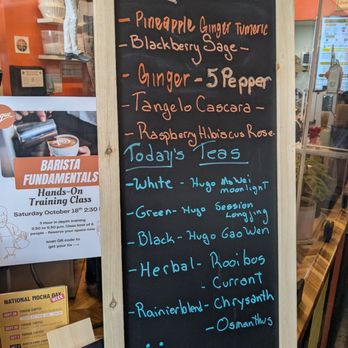 - Pineapple Ginger Turmeric
- Blackberry Sage -
- Ginger - 5 Pepper
- Tangelo Cascara -
- Raspberry Hibiscus Rose -
Today's Teas
- White - Hugo Mo Wei
moonlight
- Green - Hugo Session
Longjing
- Black - Hugo Gao Wen
- Herbal - Rooibos
- Currant
- Rainier blend - Chrysanth
- Osmanthus
BARISTA
FUNDAMENTALS
Hands-On
Training Class
Saturday October 18th 2:30
2 Hour in depth training
scan QR code to
get your tix
NATIONAL MOCHA DAY